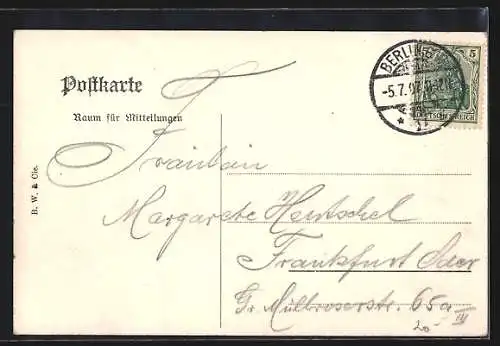 Postkarte
Raum für Mitteilungen
B. W. & Cie.
BERLIN
-5.7.07
5
DEUTSCHES REICH
Fräulein
Margarete Hentschel
Frankfurt Oder
Gr. Müllroserstr. 65a
III